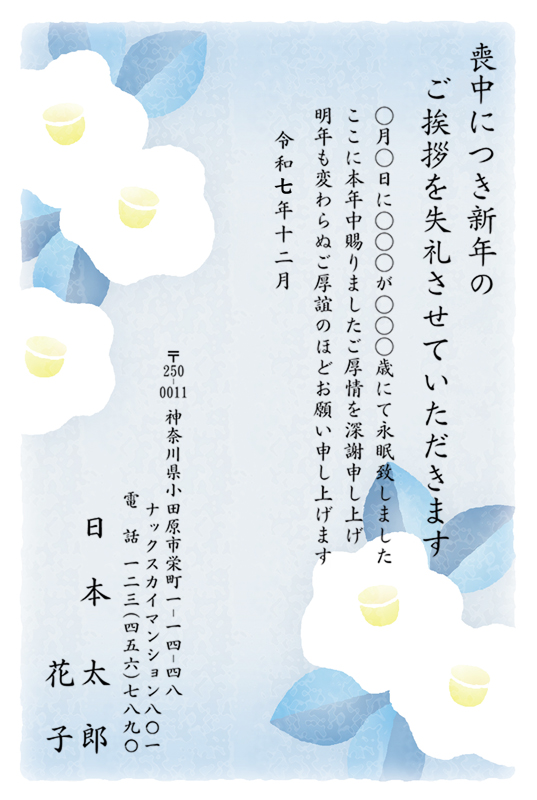 喪中につき新年の
ご挨拶を失礼させていただきます
〇月〇日に〇〇〇が〇〇〇歳にて永眠致しました
ここに本年中賜りましたご厚情を深謝申し上げ
明年も変わらぬご厚誼のほどお願い申し上げます
令和七年十二月
〒250-0011 神奈川県小田原市栄町一-一四-四八
ナックスカイマンション八〇一
電話 一二三(四五六)七八九〇
日本 太郎
花子